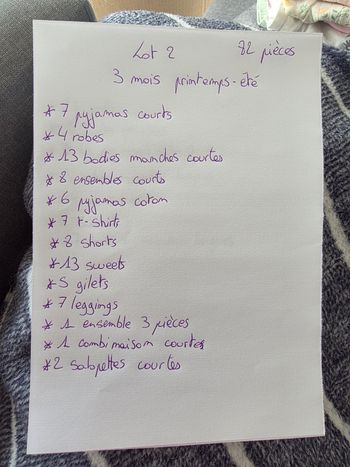 Lot 2 82 pièces
3 mois printemps-été
* 7 pyjamas courts
* 4 robes
* 13 bodies manches courtes
* 8 ensembles courts
* 6 pyjamas coton
* 7 t-shirts
* 8 shorts
* 13 sweets
* 5 gilets
* 7 leggings
* 1 ensemble 3 pièces
* 1 combinaison courtes
* 2 salopettes courtes